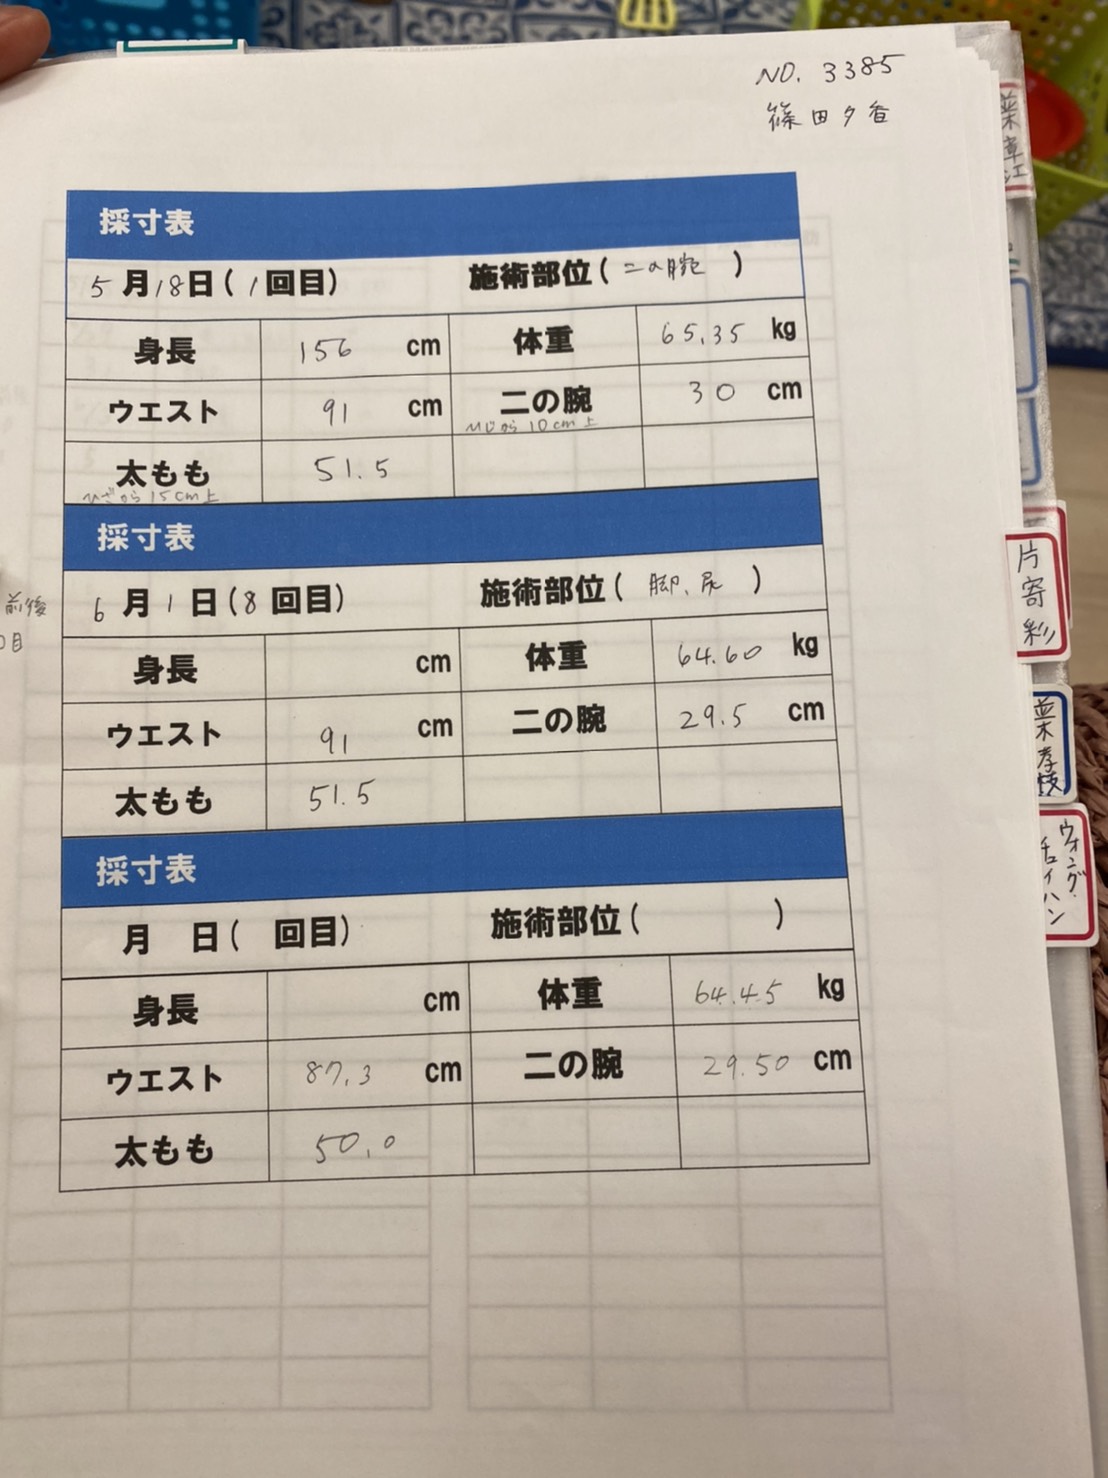 NO. 3385
篠田夕香
採寸表
5月18日(1回目) 施術部位(二の腕)
身長 156 cm 体重 65.35 kg
ウエスト 91 cm 二の腕 30 cm
ひじから10cm上
太もも 51.5
ひざから15cm上
採寸表
6月1日(8回目) 施術部位(脚、尻)
身長 cm 体重 64.60 kg
ウエスト 91 cm 二の腕 29.5 cm
太もも 51.5
採寸表
月 日( 回目) 施術部位( )
身長 cm 体重 64.45 kg
ウエスト 87.3 cm 二の腕 29.50 cm
太もも 50.0
前後
目
片寄彩
ウォング・
チョイハン